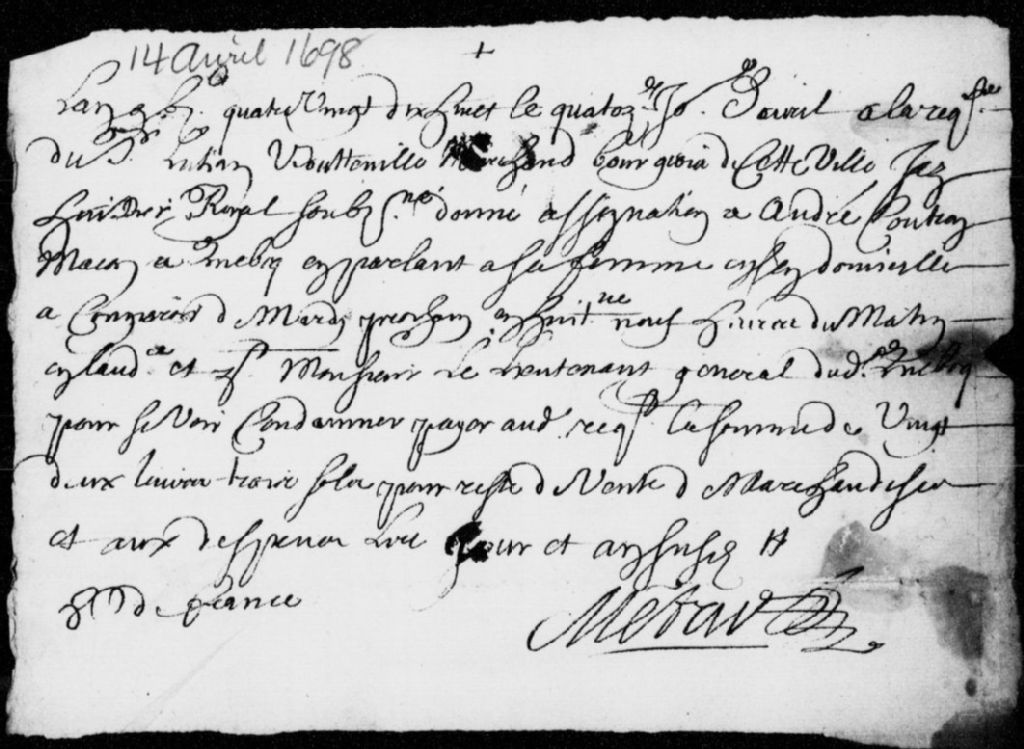 14 avril 1698
+
Lan gbj.c quatre Vingt dix huict le quatorze Jor. Davril a la reqste
du Sr. Vitouteville Marchand bourgeois de Cette Ville Jay
huissier Royal soubzne donné assignation a André Coutron
Macon a quebec en parlant a sa femme en son domicille
a Comparoir de Mardy prochain en huitne neuf heures du Matin
en laude et pt Monsieur Le Lieutenant general dud. Quebec
pour se Voir Condamner payer aud. reqt la somme de Vingt
deux livres trois sols pour reste de Vente de Marchandises
et aux despens Les Jour et an susd
de france
Metru